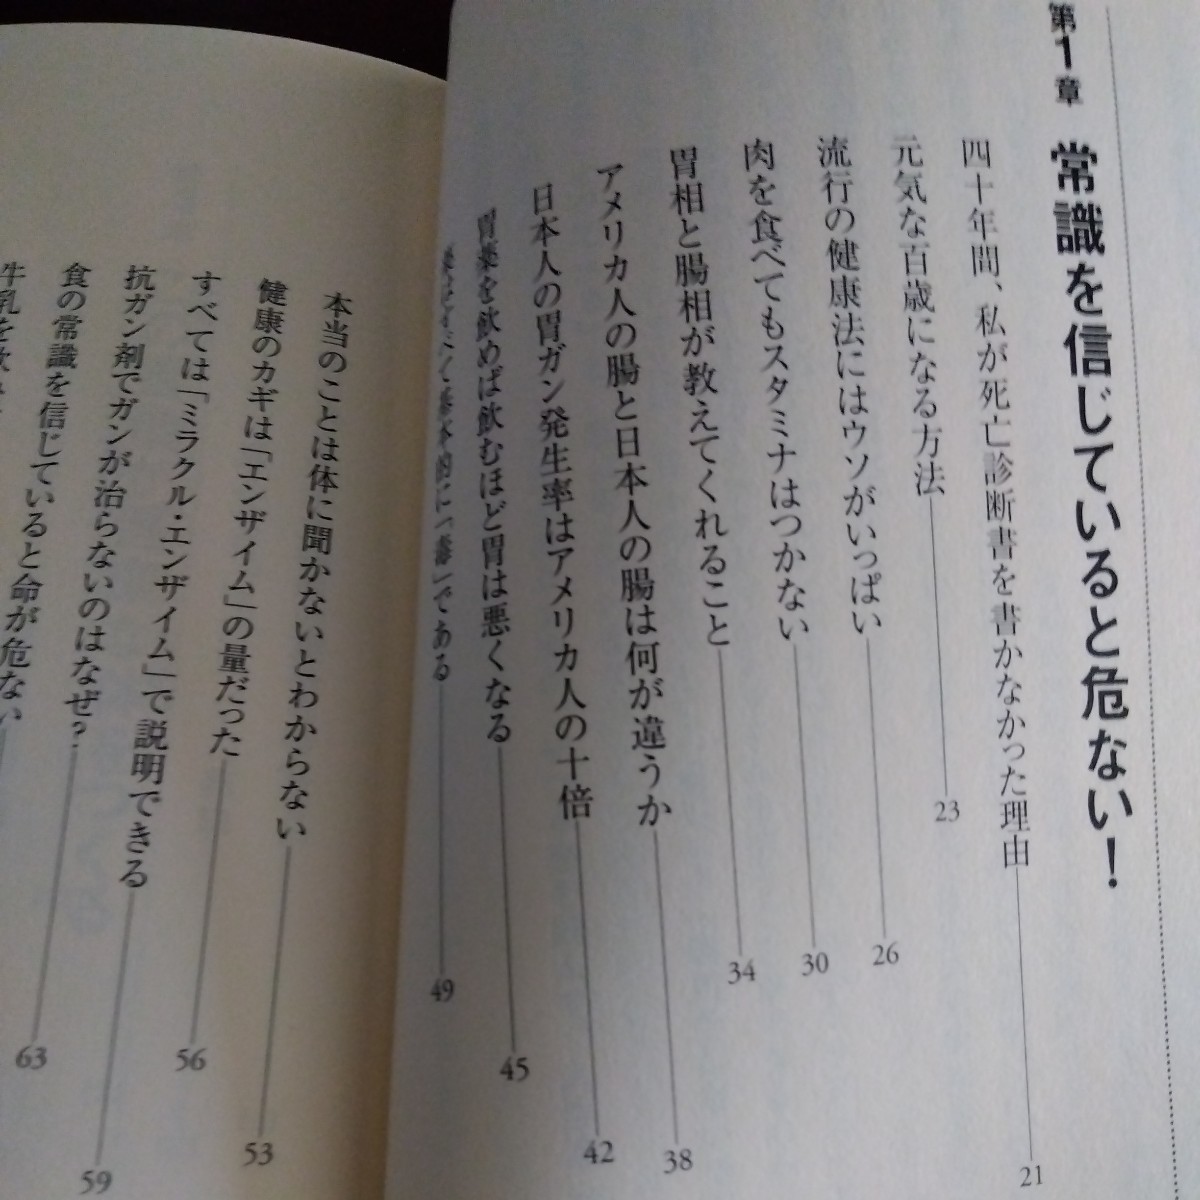 第1章 常識を信じていると危ない!
四十年間、私が死亡診断書を書かなかった理由 21
元気な百歳になる方法 23
流行の健康法にはウソがいっぱい 26
肉を食べてもスタミナはつかない 30
胃相と腸相が教えてくれること 34
アメリカ人の腸と日本人の腸は何が違うか 38
日本人の胃ガン発生率はアメリカ人の十倍 42
胃薬を飲めば飲むほど胃は悪くなる 45
薬はすべて基本的に「毒」である 49
本当のことは体に聞かないとわからない 53
健康のカギは「エンザイム」の量だった 56
すべては「ミラクル・エンザイム」で説明できる 59
抗ガン剤でガンが治らないのはなぜ? 63
食の常識を信じていると命が危ない
牛乳を